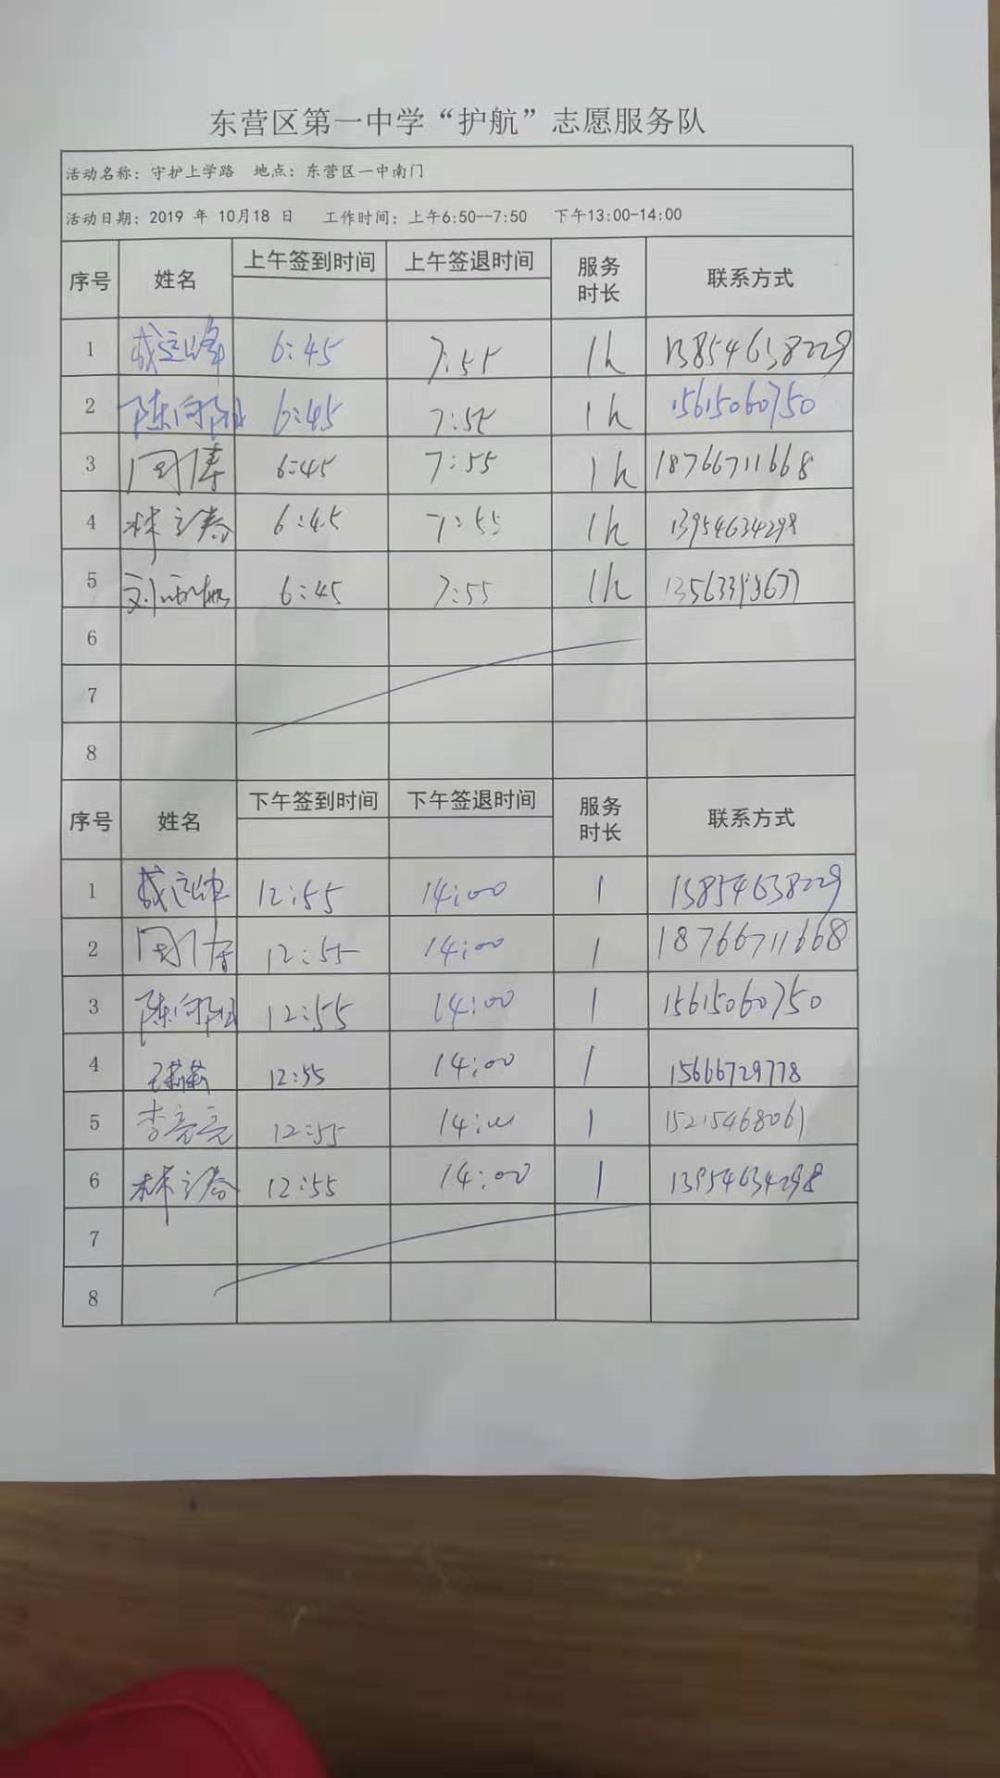 东营区第一中学“护航”志愿服务队
活动名称：守护上学路 地点：东营区一中南门
活动日期：2019 年 10月18 日 工作时间：上午6:50--7:50 下午13:00-14:00
序号 姓名 上午签到时间 上午签退时间 服务时长 联系方式
1 6:45 7:55 1h 13854638229
2 陈向阳 6:45 7:55 1h 15615060750
3 周涛 6:45 7:55 1h 18766711668
4 林立春 6:45 7:55 1h 13954634298
5 6:45 7:55 1h
6
7
8
序号 姓名 下午签到时间 下午签退时间 服务时长 联系方式
1 12:55 14:00 1 13854638229
2 周涛 12:55 14:00 1 18766711668
3 陈向阳 12:55 14:00 1 15615060750
4 12:55 14:00 1 15666729778
5 李亮亮 12:55 14:00 1 15215468061
6 林立春 12:55 14:00 1 13954634298
7
8